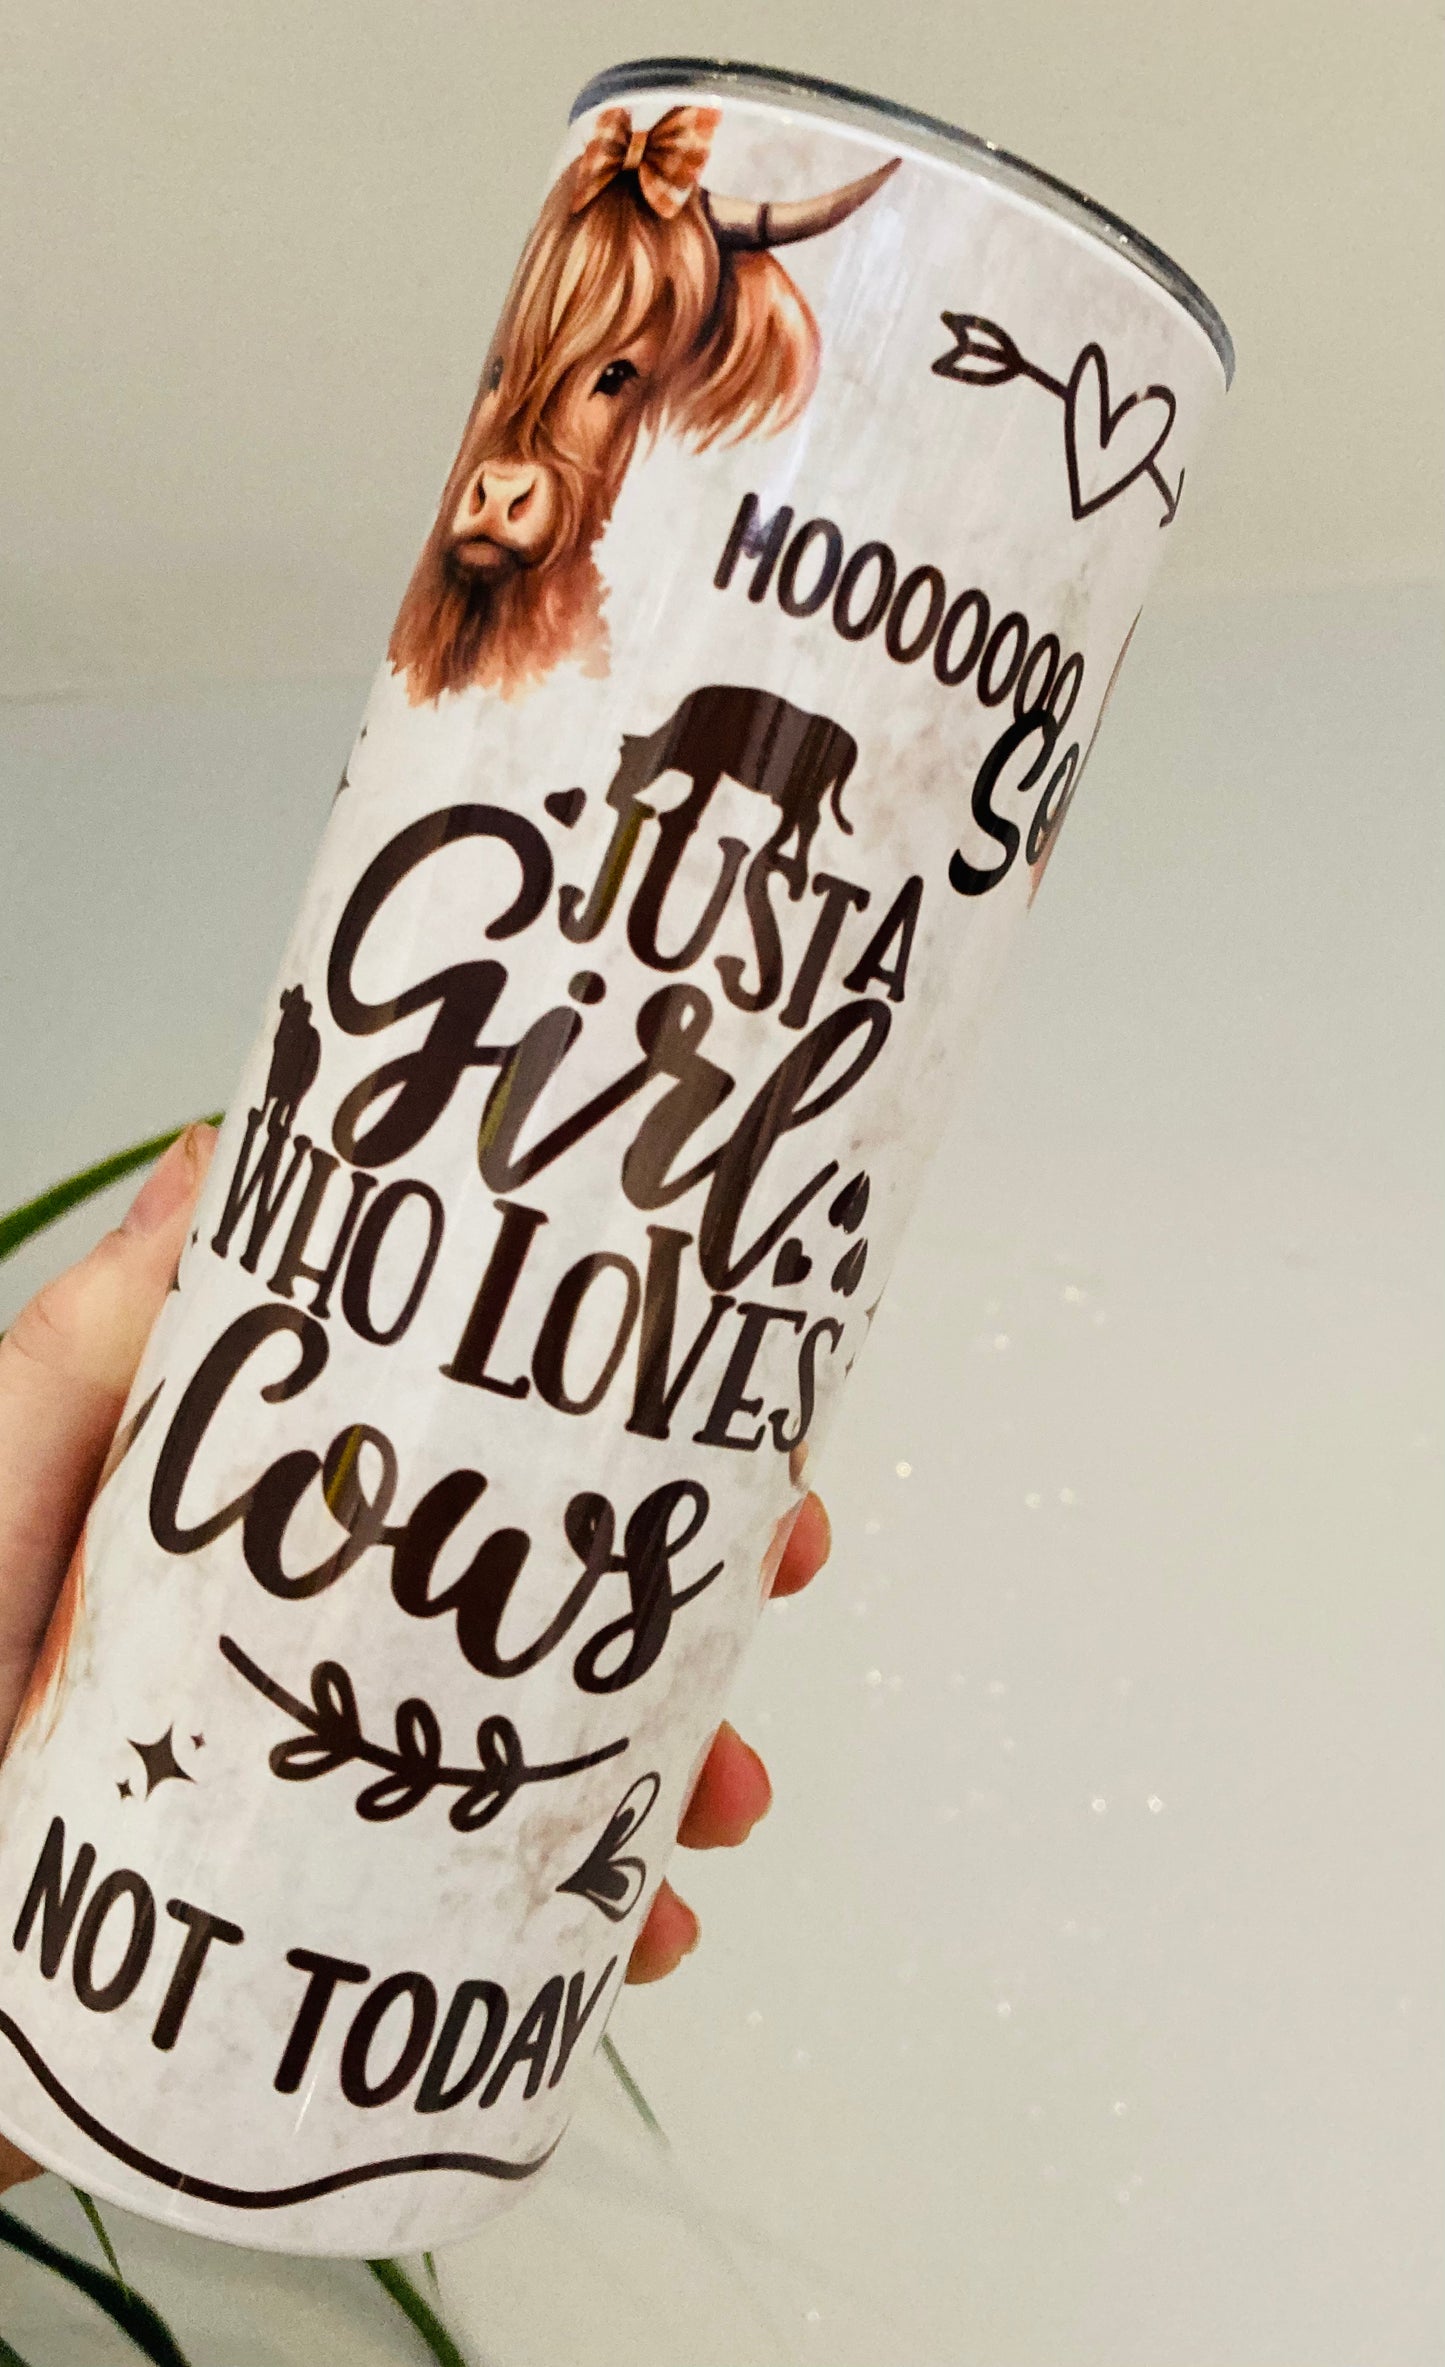 MOOOOOOO
So
JUST A
Girl
WHO LOVES
Cows
NOT TODAY